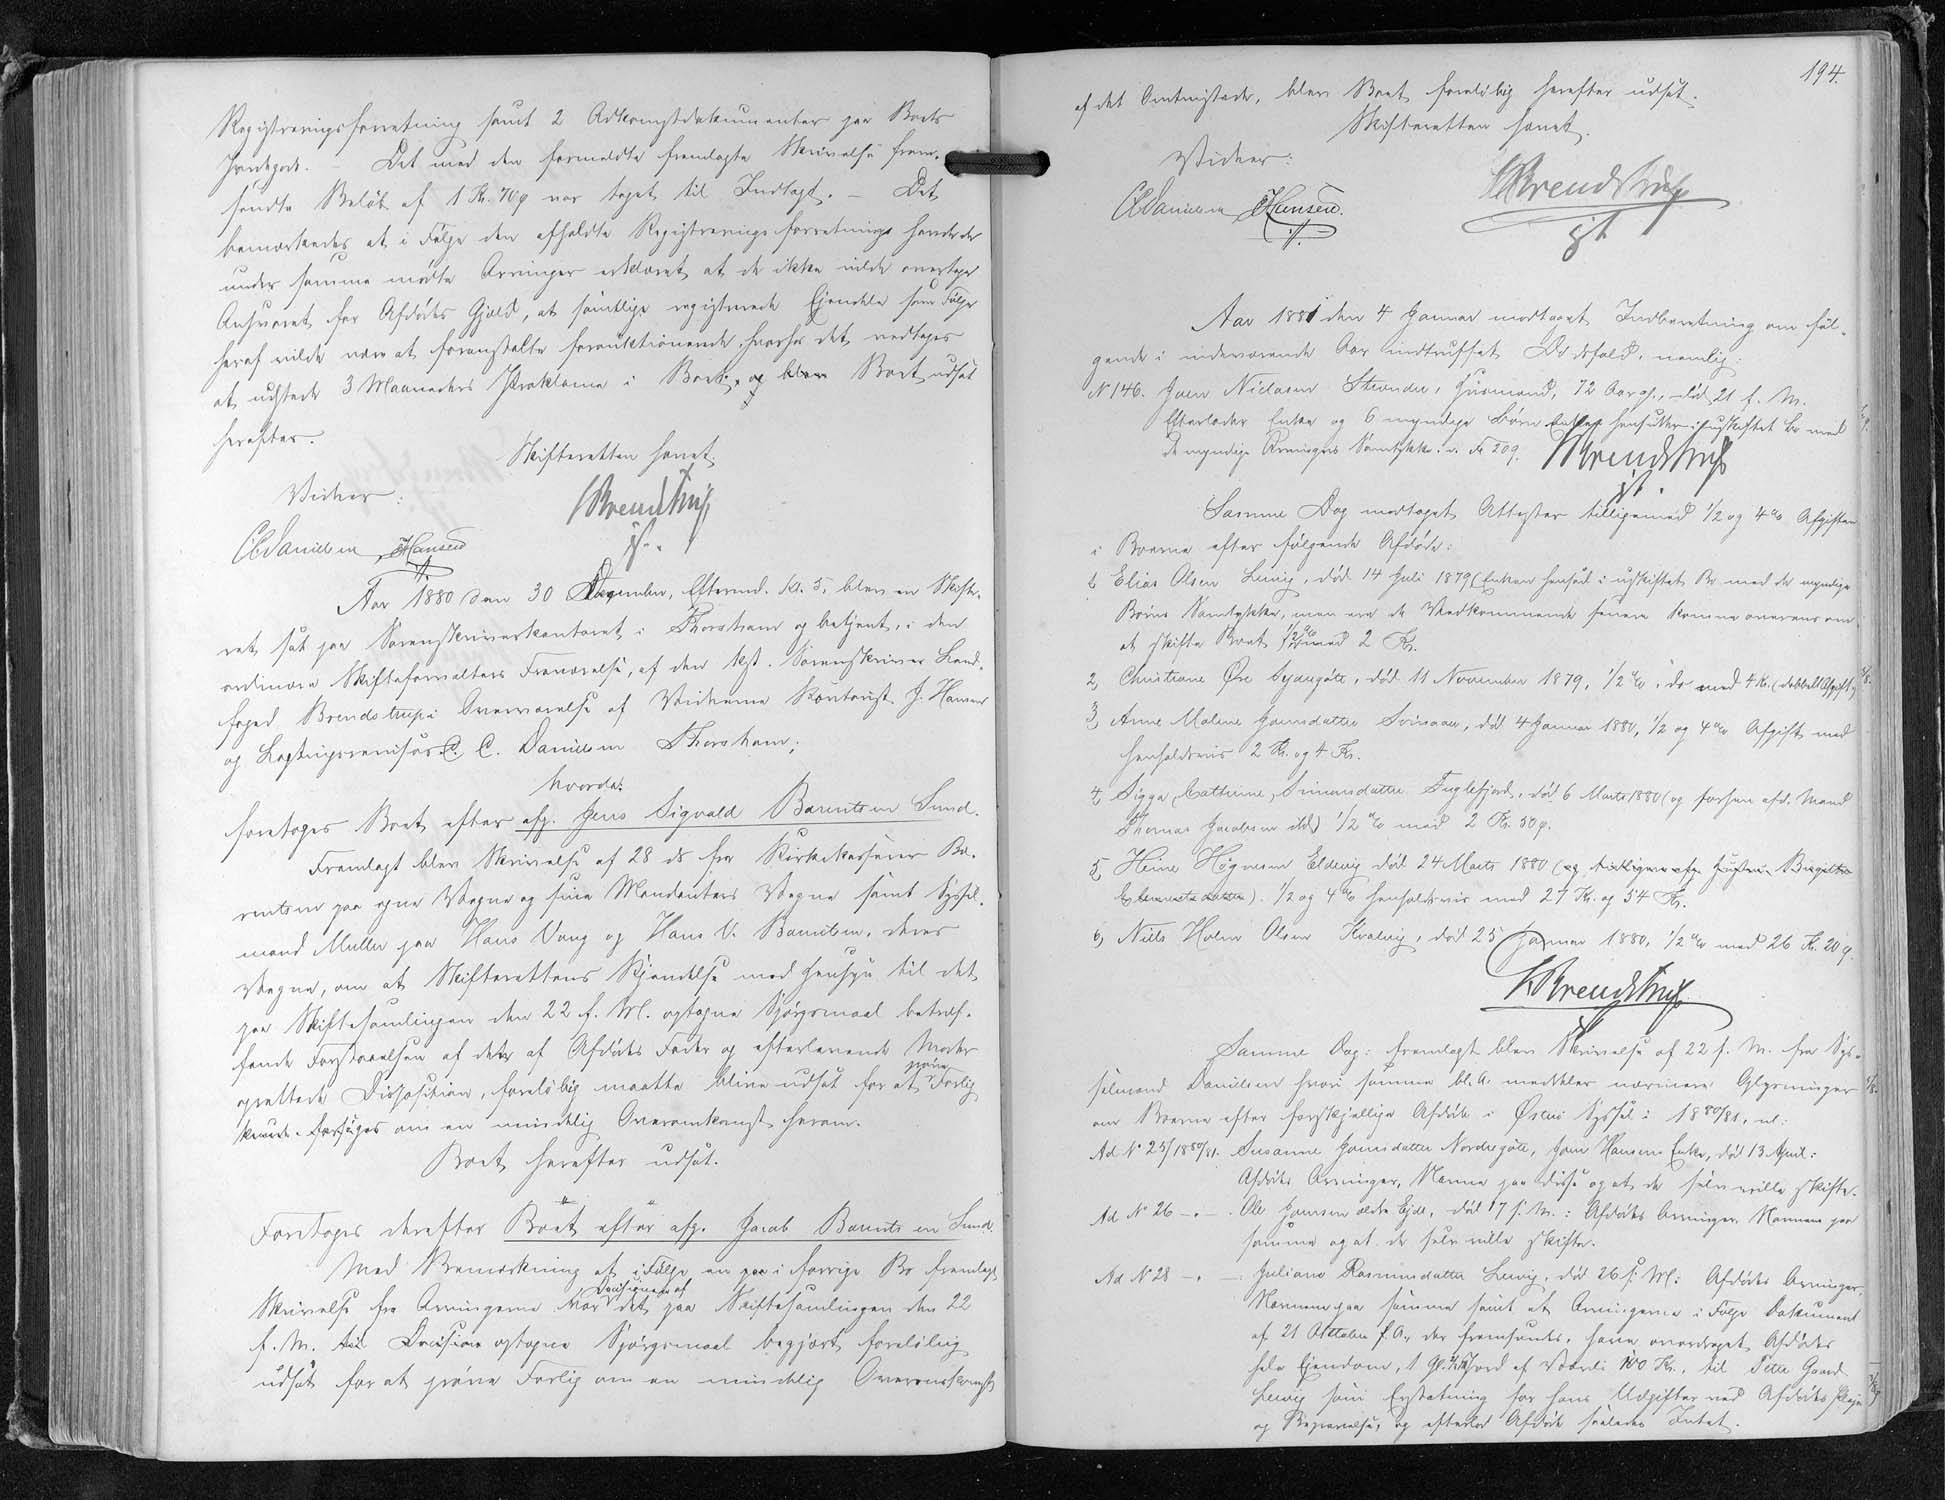 Registreringsforretning samt 2 Adkomstdokumenter paa Boets
Jordegods. – Det med den formeldte fremlagte Skrivelse frem-
sendte Beløb af 1 Kr. 70 ø var taget til Indtægt. – Det
bemærkedes at i Følge den afholdte Registreringsforretning havde de
under samme mødte Arvinger erklæret at de ikke vilde overtage
Ansvaret for Afdødes Gjæld, at samtlige registrerede Ejendele som Følge
heraf vilde være at foranstalte forauktionerede, hvorhos det vedtoges
at udstede 3 Maaneders Proklama i Boet, og blev Boet udsat
herefter.
Skifteretten hævet.
Vidner:
Brendstrup
cst.
C C Danielsen J Hansen
Aar 1880 den 30 December, Eftermd. Kl. 5, blev en Skifte-
ret sat paa Sorenskriverkontoret i Thorshavn og betjent, i den
ordinære Skifteforvalters Fraværelse, af den kst. Sorenskriver Land-
foged Brendstrup i Overværelse af Vidnerne Kontorist J. Hansen
og Lagtingsrevisor C. C. Danielsen Thorshavn;
hvorda:
foretoges Boet efter afg. Jens Sigvald Barentsen Sund.
Fremlagt blev Skrivelse af 28 ds fra Kirkekasserer Ba-
rentsen paa egne Vegne og sine Mandanters Vegne samt Syssel-
mand Müller paa Hans Vang og Hans V. Barentsen, deres
Vegne, om at Skifterettens Kjendelse med Hensyn til det
paa Skiftesamlingen den 22 f. M. optagne Spørgsmaal betræf-
fende Forstaaelsen af den af Afdødes Fader og efterlevende Moder
oprettede Disposition, foreløbig maatte blive udsat for at prøve Forlig
forsøges om en mindelig Overenskomst herom.
Boet herefter udsat.
Foretoges derefter Boet efter afg. Jacob Barentsen Sund
Med Bemærkning at i Følge en i forrige Bo fremlagt
Skrivelse fra Arvingerne var Decisionen af det paa Skiftesamlingen den 22
f. M. til Decision optagne Spørgsmaal begjært foreløbig
udsat for at prøve Forlig om en mindelig Overenskomst
194.
af det Omtvistede, blev Boet foreløbig herefter udsat.
Skifteretten hævet.
Vidner:
Brendstrup
cst
C C Danielsen J Hansen.
Aar 1881 den 4 Januar modtaget Indberetning om føl-
gende i indeværende Aar indtruffet Dødsfald, nemlig:
No 146. Joen Niclasen Strender, Husmand, 72 Aar gl., død 21 f. M.
Efterlader Enke og 6 myndige Børn Enken hensidder i uskiftet Bo med
de myndige Arvingers Samtykke. v. Fo 209. Brendstrup
cst.
Samme Dag modtaget Attester tilligemed 1/2 og 4 % Afgiften
i Boerne efter følgende Afdøde:
1, Elias Olsen Leivig, død 14 Juli 1879 (Enken hensad i uskiftet Bo med de myndige
Børns Samtykke, men ere de Vedkommende senere komne overens om
at skifte Boet) 1/2 % med 2 Kr.
2, Christiane Øre Sydregøte, død 11 November 1879, 1/2 %, do med 4 Kr. (dobbelt Afgift)
3, Anne Malene Joensdatter Svinaa, død 4 Januar 1880, 1/2 og 4 % Afgift med
henholdsvis 2 Kr. og 4 Kr.
4, Sigga Cathrine Simonsdatter Fuglefjord, død 6 Marts 1880 (og forhen afd. Mand
Thomas Jacobsen ibd.) 1/2 % med 2 Kr. 50 ø.
5, Heine Høgnesen Eldevig død 24 Marts 1880 (og tidligere afg. Hustru Birgitte
). 1/2 og 4 % henholdsvis med 27 Kr. og 54 Kr.
6, Niels Holm Olsen Kvalvig, død 25 Januar 1880, 1/2 % med 26 Kr. 20 ø.
Brendstrup
Samme Dag: fremlagt blev Skrivelse af 22 f. M. fra Sys-
selmand Danielsen hvori samme bl. A. meddeler nærmere Oplysninger
om Boerne efter forskjellige Afdøde i Østerø Syssel i 1880/81, nl:
Ad No 25/1880/81. Susanne Joensdatter Nordregøte, Joen Hansens Enke, død 13 April:
Afdødes Arvinger, Navne paa disse og at de selv ville skifte.
Ad No 26 –„– . Ole Joensen ældre Ejde, død 17 f. M.: Afdødes Arvinger, Navnene paa
samme og at de selv ville skifte.
Ad No 28 –„– : Juliane Rasmusdatter Leivig, død 26 f. M: Afdødes Arvinger,
Navnene paa samme samt at Arvingerne i Følge Dokument
af 21 Oktober f. A., der fremsendes, have overdraget Afdødes
hele Ejendom, 1 Gl. Jord af Værdi 100 Kr., til Peter Gaard
Leivig som Erstatning for hans Udgifter ved Afdødes Pleje
og Begravelse, og efterlod Afdøde saaledes Intet.